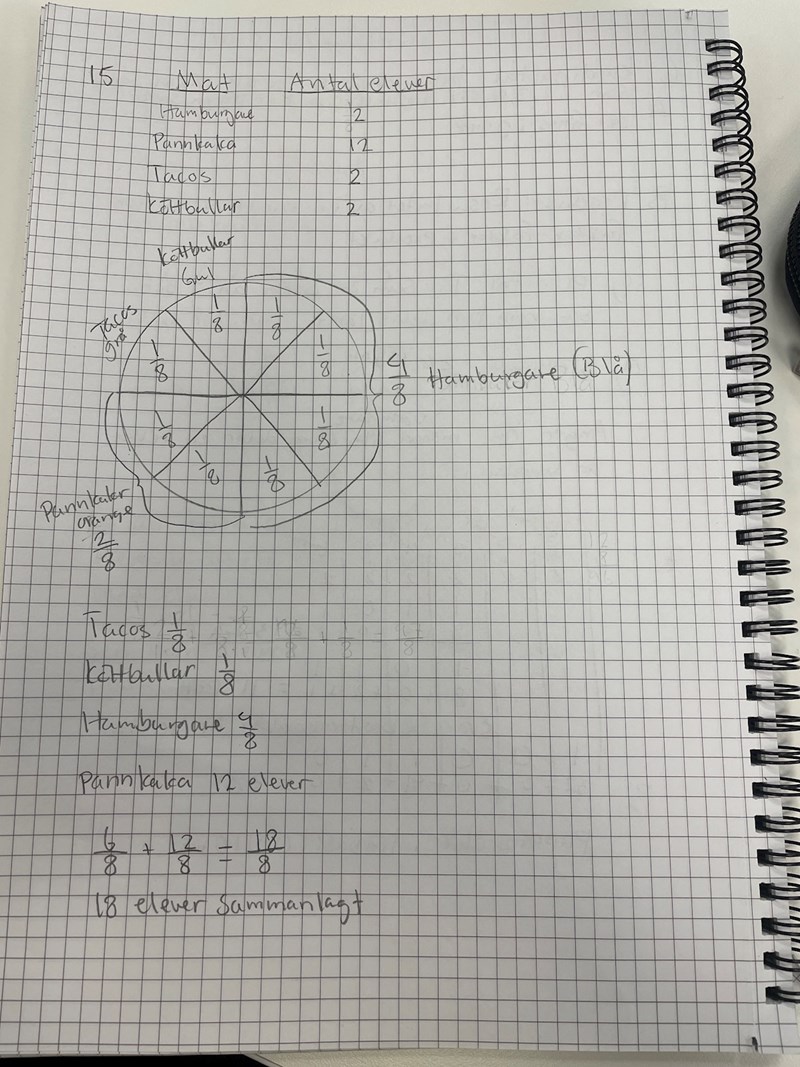 15 Mat Antal elever
Hamburgare 2
Pannkaka 12
Tacos 2
Köttbullar 2
Köttbullar
Gul
Tacos
grå
1/8 1/8
1/8 1/8
4/8 Hamburgare (Blå)
1/8 1/8
1/8 1/8
Pannkakor
orange
2/8
Tacos 1/8
Köttbullar 1/8
Hamburgare 4/8
Pannkaka 12 elever
6/8 + 12/8 = 18/8
18 elever Sammanlagt